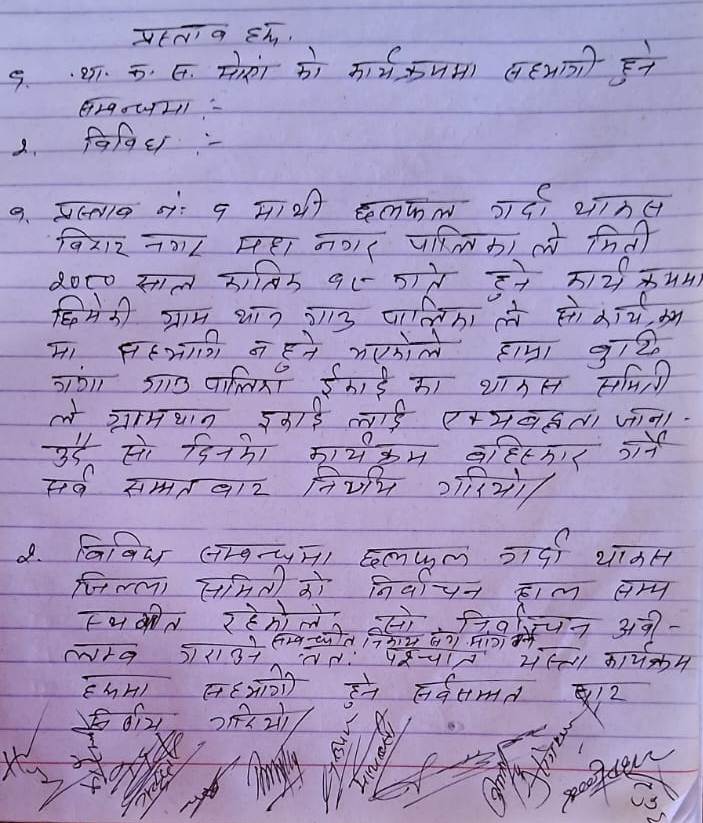 प्रस्ताव हरू.
१. था. क. स. मोरंग को कार्यक्रममा सहभागी हुने
सम्बन्धमा :-
२. विविध :-
१. प्रस्ताव नं: १ माथी छलफल गर्दा थाकस
विराट नगर महा नगर पालिका ले मिती
२०८० साल कार्तिक १८ गते हुने कार्य क्रममा
छिमेकी ग्राम थान गाउ पालिका ले सो कार्यक्रम
मा सहभागि न हुने भएकोले हाम्रा बुढि
गंगा गाउ पालिका ईकाई का थाकस समिती
ले ग्रामथान इकाई लाई एक्यबद्धता जाना-
उदै सो दिनको कार्यक्रम बहिस्कार गर्ने
सर्व सम्मत बाट निर्णय गरियो/
२. विविध सम्बन्धमा छलफल गर्दा थाकस
जिल्ला समिती को निर्वाचन हाल सम्म
स्थगीत रहेकोले सो निर्वाचन अवी-
सम्बन्धीत निकाय संग माग गर्ने
लम्ब गराउने तत: पश्चात यस्ता कार्यक्रम
हरूमा सहभागी हुने सर्वसम्मत बाट
निर्णय गरियो/